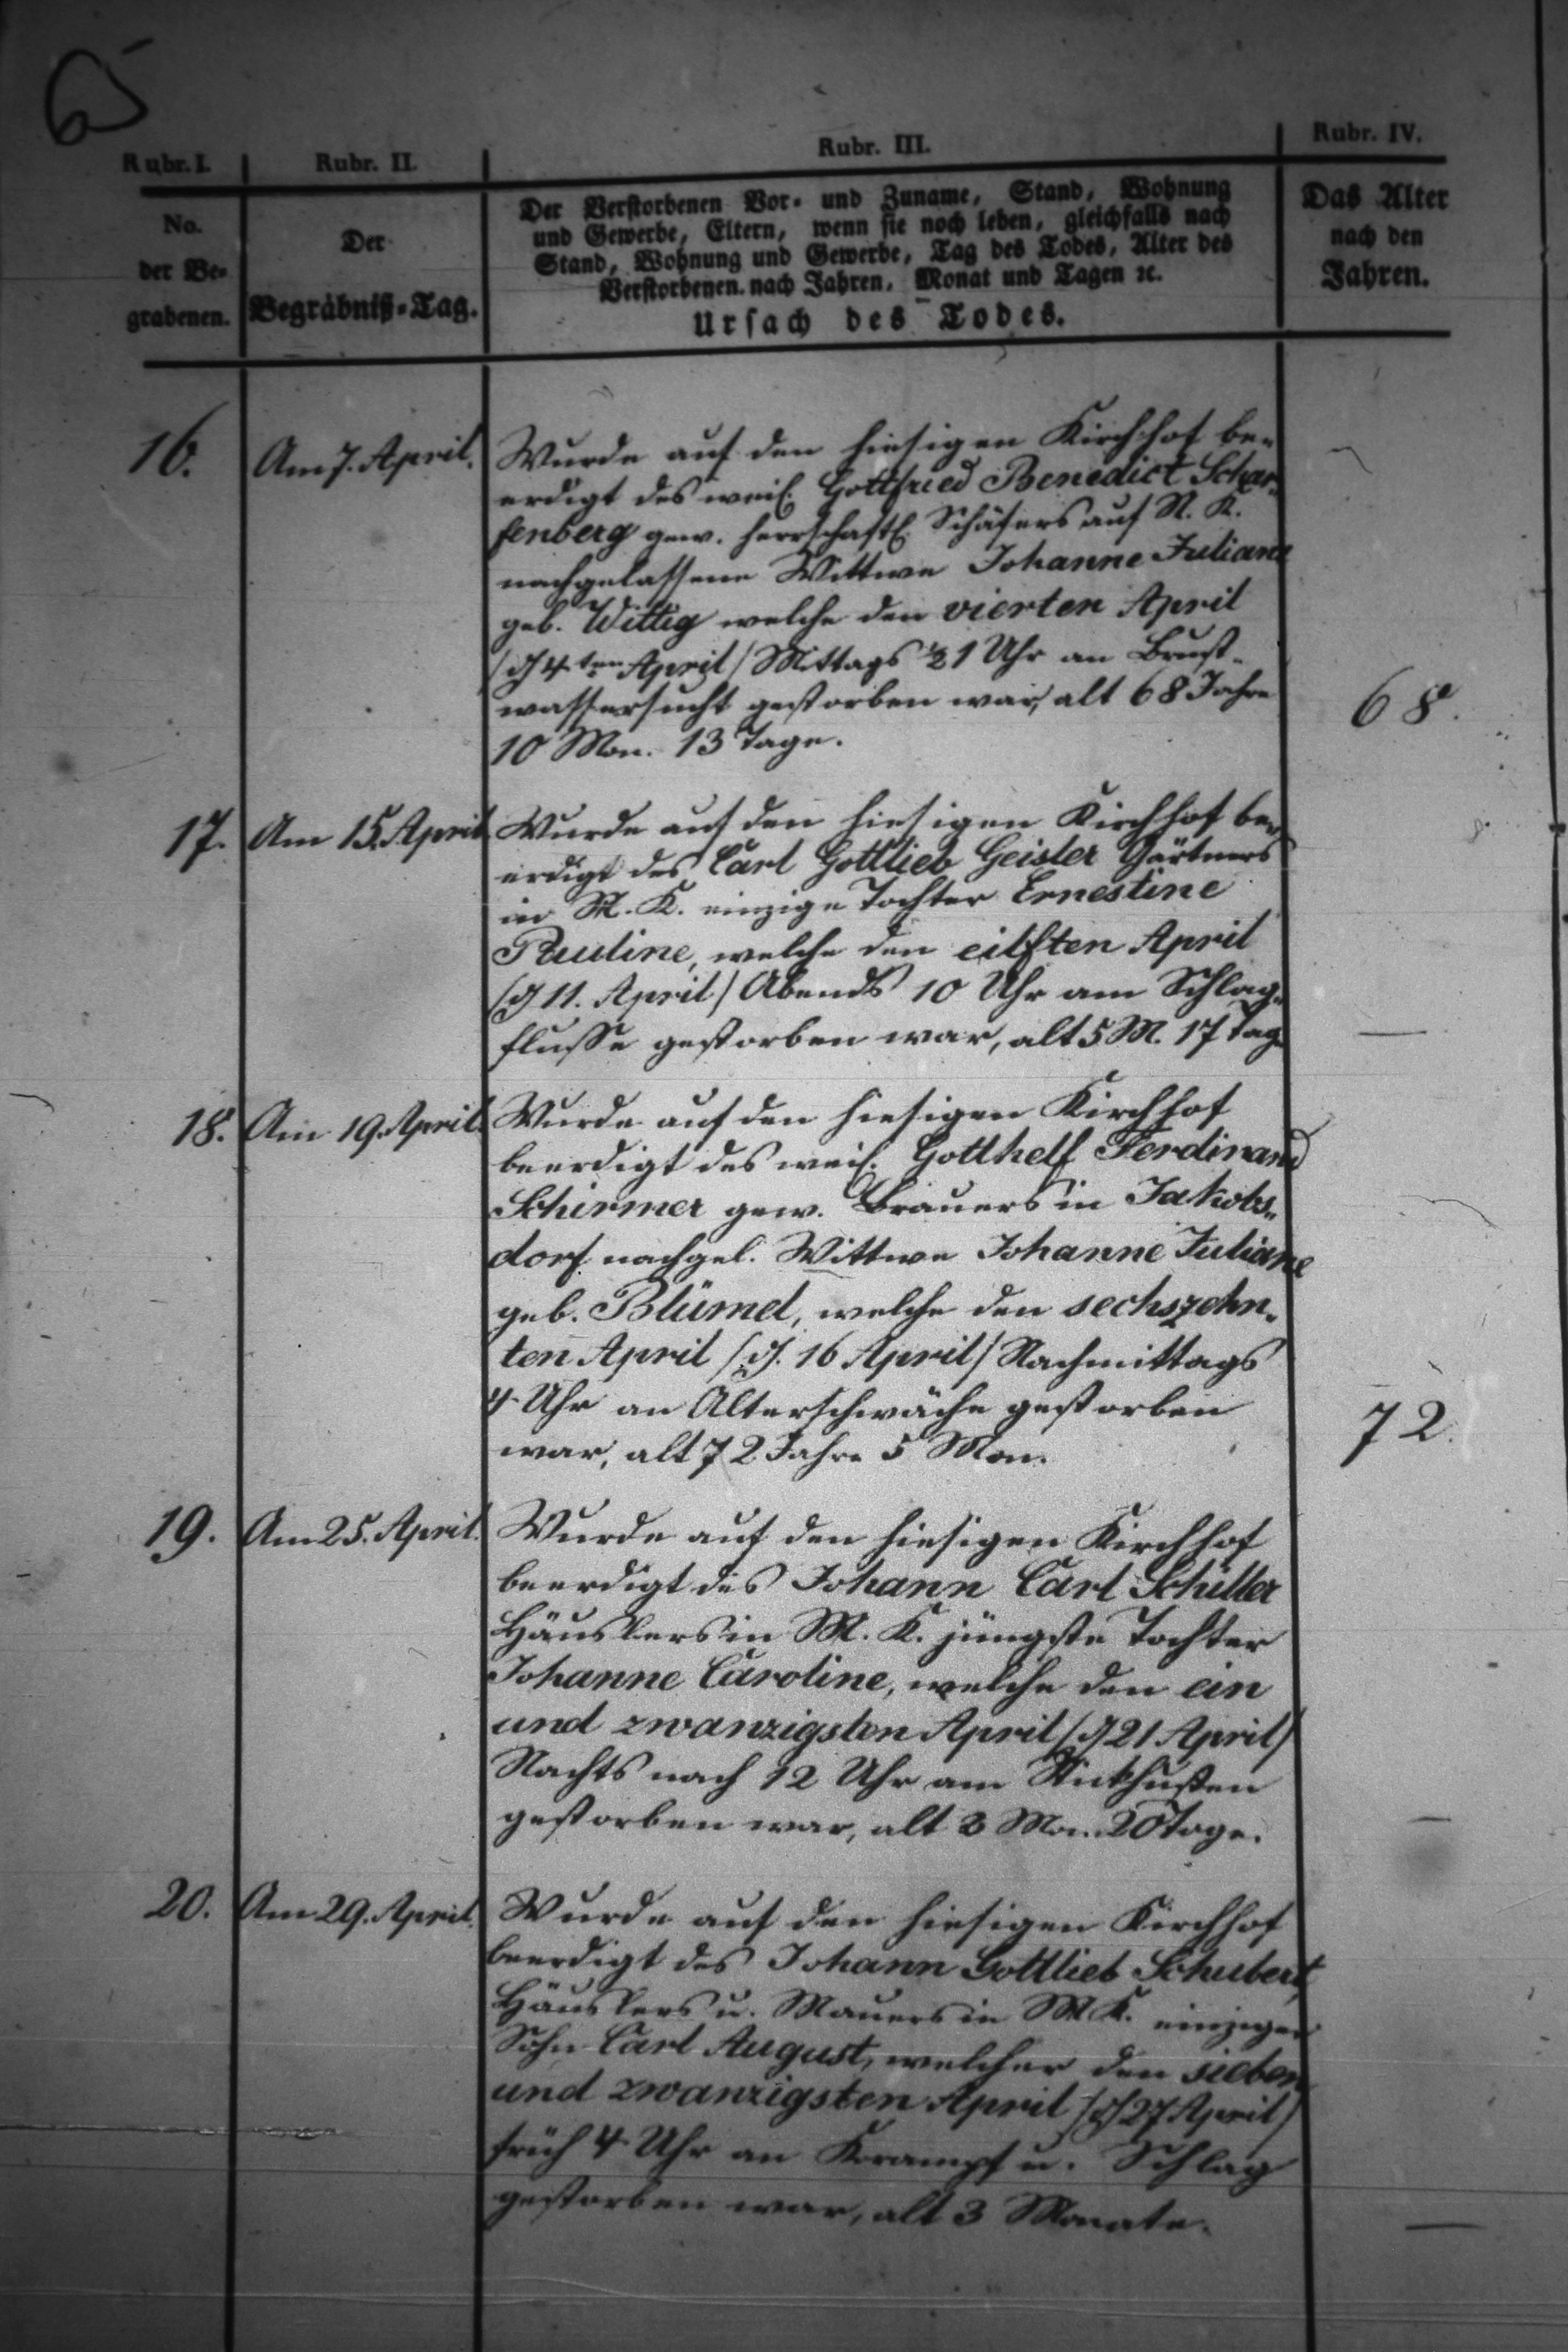 65
Rubr. I.
Rubr. II.
Rubr. III.
Rubr. IV.
No.
der Be-
grabenen.
Der
Begräbniß-Tag.
Der Verstorbenen Vor- und Zuname, Stand, Wohnung
und Gewerbe, Eltern, wenn sie noch leben, gleichfalls nach
Stand, Wohnung und Gewerbe, Tag des Todes, Alter des
Verstorbenen nach Jahren, Monat und Tagen ꝛc.
Ursach des Todes.
Das Alter
nach den
Jahren.
16.
Am 7. April.
Wurde auf den hiesigen Kirchhof be-
erdigt des weil. Gottfried Benedict Schar-
fenberg gew. herrschaftl. Schäfers auf N. K.
nachgelassene Wittwe Johanne Juliane
geb. Wittig welche den vierten April
/d 4ten April/ Mittags ½1 Uhr an Brust-
wassersucht gestorben war, alt 68 Jahre
10 Mon. 13 Tage.
68.
17.
Am 15. April
Wurde auf den hiesigen Kirchhof be-
erdigt des Carl Gottlieb Geisler Gärtners
in M. K. einzige Tochter Ernestine
Pauline, welche den eilften April
/d 11. April/ Abends 10 Uhr am Schlag-
flusse gestorben war, alt 5 M. 17 Tag
—
18.
Am 19. April.
Wurde auf den hiesigen Kirchhof
beerdigt des weil. Gotthelf Ferdinand
Schirmer gew. Brauers in Jakobs-
dorf nachgel. Wittwe Johanne Juliane
geb. Blümel, welche den sechszehn-
ten April /d. 16 April/ Nachmittags
4 Uhr an Alterschwäche gestorben
war, alt 72 Jahre 5 Mon.
72.
19.
Am 25. April.
Wurde auf den hiesigen Kirchhof
beerdigt des Johann Carl Schiller
Häuslers in M. K. jüngste Tochter
Johanne Caroline, welche den ein
und zwanzigsten April /d 21 April/
Nachts nach 12 Uhr am Stickhusten
gestorben war, alt 3 Mon. 20 Tage.
—
20.
Am 29. April.
Wurde auf den hiesigen Kirchhof
beerdigt des Johann Gottlieb Schubert,
Häuslers u. Mauers in M. K. einziger
Sohn Carl August, welcher den sieben
und zwanzigsten April /d 27 April/
früh 4 Uhr an Krampf u. Schlag
gestorben war, alt 3 Monate.
—